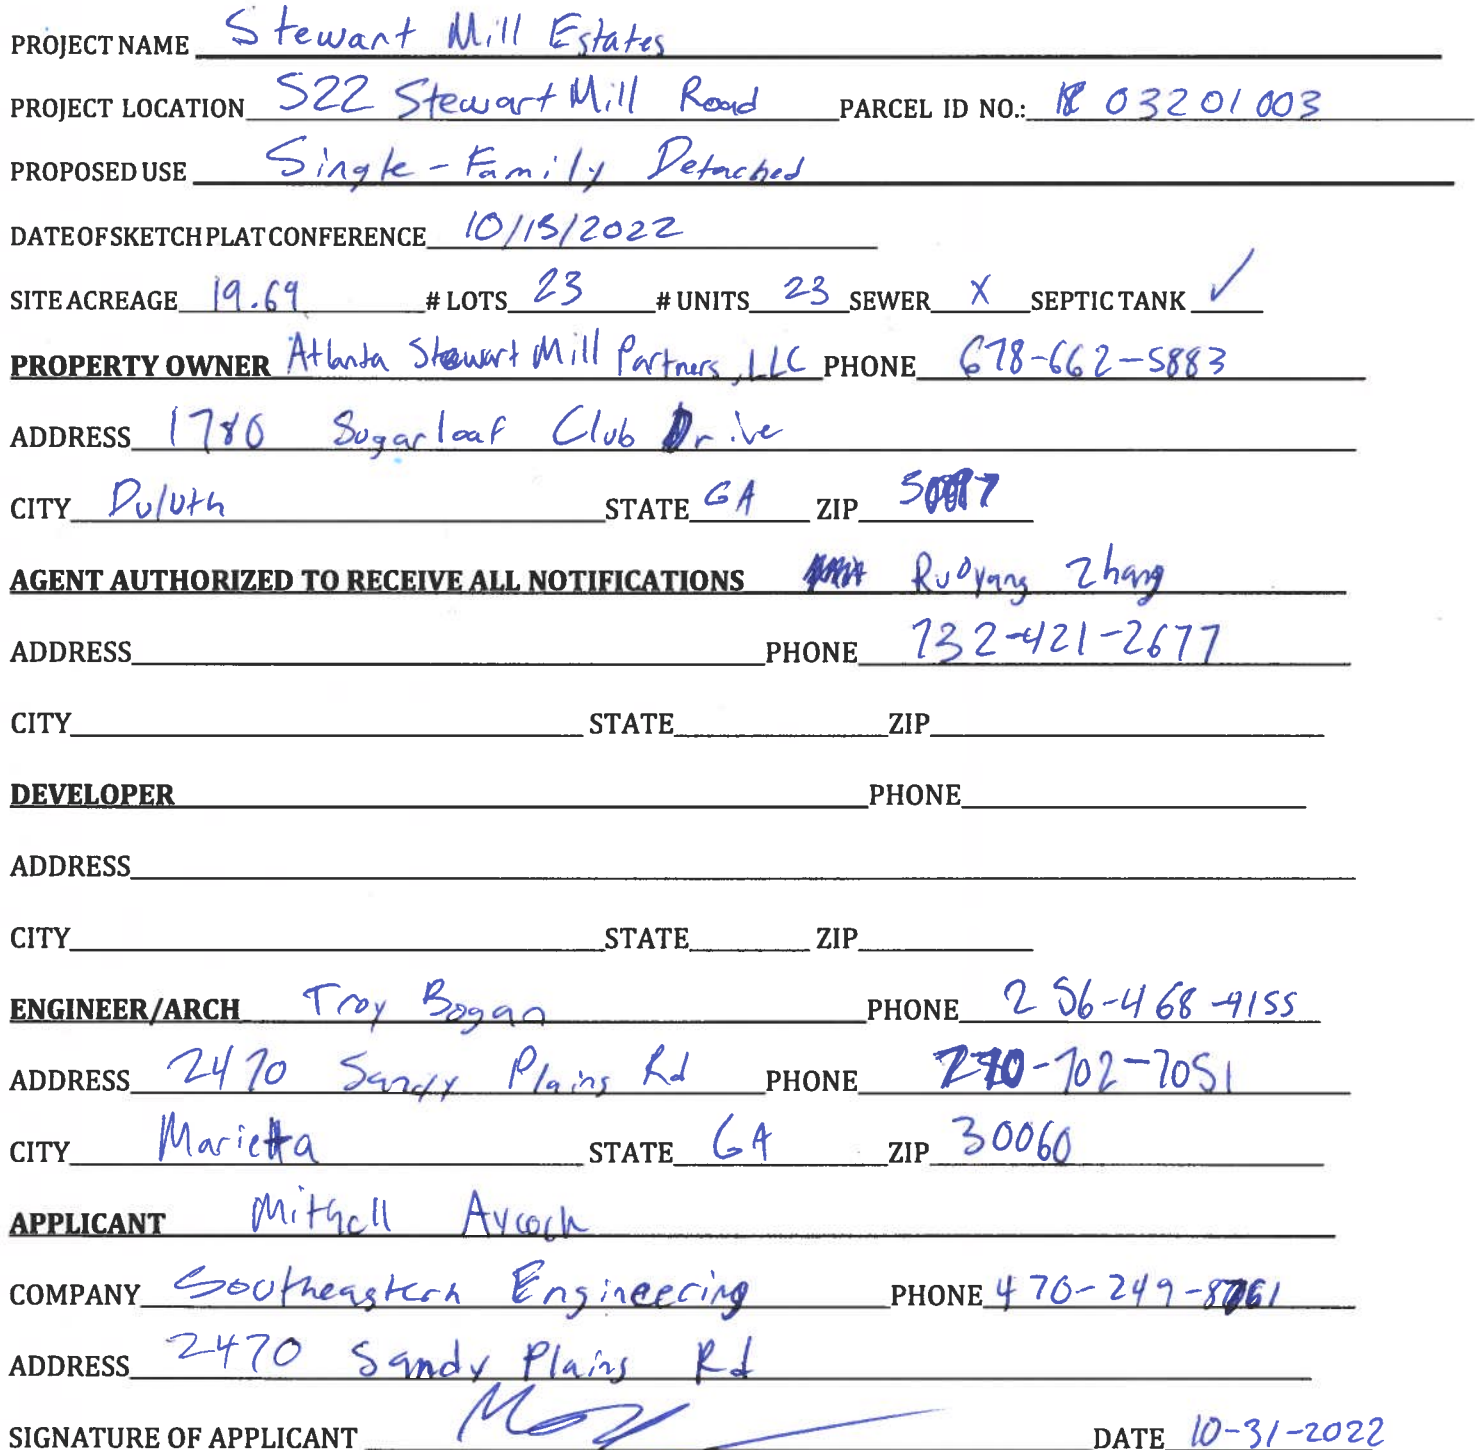 PROJECT NAME Stewart Mill Estates
PROJECT LOCATION 522 Stewart Mill Road PARCEL ID NO.: R 03201003
PROPOSED USE Single-Family Detached
DATE OF SKETCH PLAT CONFERENCE 10/15/2022
SITE ACREAGE 19.69 # LOTS 23 # UNITS 23 SEWER X SEPTIC TANK ✓
PROPERTY OWNER Atlanta Stewart Mill Partners, LLC PHONE 678-662-5883
ADDRESS 1780 Sugarloaf Club Drive
CITY Duluth STATE GA ZIP
AGENT AUTHORIZED TO RECEIVE ALL NOTIFICATIONS Ruoyang Zhang
ADDRESS PHONE 732-421-2677
CITY STATE ZIP
DEVELOPER PHONE
ADDRESS
CITY STATE ZIP
ENGINEER/ARCH Troy Bogan PHONE 256-468-9155
ADDRESS 2470 Sandy Plains Rd PHONE
CITY Marietta STATE GA ZIP 30060
APPLICANT Mitchell Aycock
COMPANY Southeastern Engineering PHONE
ADDRESS 2470 Sandy Plains Rd
SIGNATURE OF APPLICANT DATE 10-31-2022